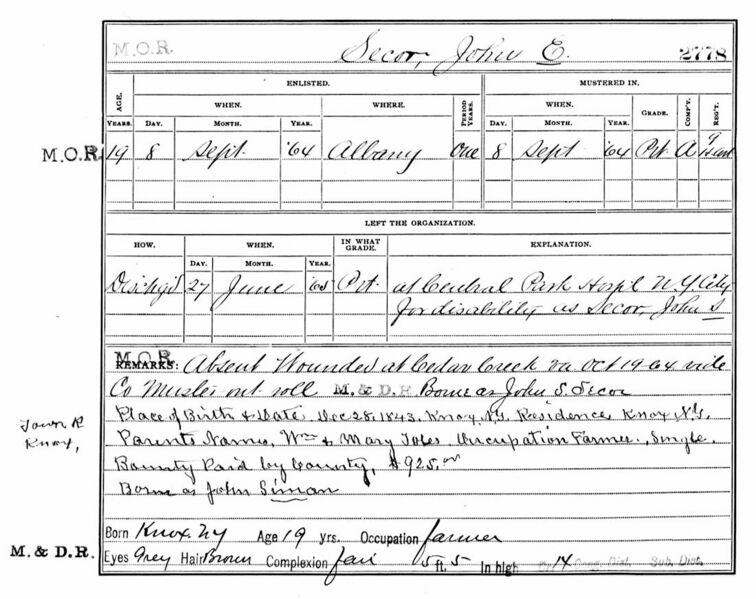 M.O.R. Secor, John E. 2778
ENLISTED. MUSTERED IN.
AGE. WHEN. WHERE. PERIOD YEARS. WHEN. GRADE. COMP'Y. REG'T.
YEARS. DAY. MONTH. YEAR. DAY. MONTH. YEAR.
M.O.R. 19 8 Sept. '64 Albany One 8 Sept '64 Pvt. A 9 Heart
LEFT THE ORGANIZATION.
HOW. WHEN. IN WHAT GRADE. EXPLANATION.
DAY. MONTH. YEAR.
Disch'g'd 27 June '65 Pvt. at Central Park Hospl N.Y City
for disability as Secor, John S
M.O.R.
REMARKS: Absent Wounded at Cedar Creek va Oct 19 64 vide
Co Muster out roll M. & D.R. Borne as John S. Secor
Town R Place of Birth & Date. Dec 28, 1843. Knox, N.Y. Residence, Knox N.Y.
Knox, Parents Names, Wm & Mary Occupation Farmer., Single.
Bounty Paid by County, $925.00
Borne as John Siman
Born Knox. Ny Age 19 yrs. Occupation farmer
M. & D.R. Eyes Grey Hair Brown Complexion fair 5 ft. 5 In high 14 Cong. Dist. Sub. Dist.